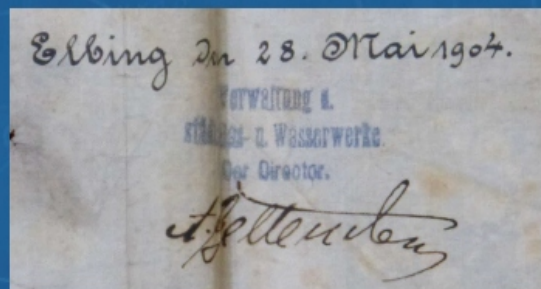 Elbing den 28. Mai 1904.
Verwaltung d.
städt. Gas- u. Wasserwerke.
Der Director.